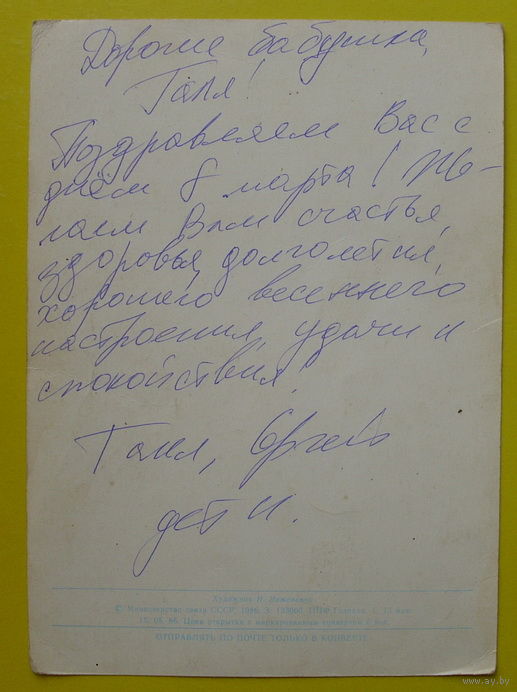 Дорогие бабушка,
Таня!
Поздравляем Вас с
днём 8 марта! Же-
лаем Вам счастья,
здоровья, долголетия,
хорошего весеннего
настроения, удачи и
спокойствия!
Таня,
дети.
Художник И.
© Министерство связи СССР, 1986. З.
15. 05. 86. Цена открытки с маркированным конвертом
ОТПРАВЛЯТЬ ПО ПОЧТЕ ТОЛЬКО В КОНВЕРТЕ
www.ay.by